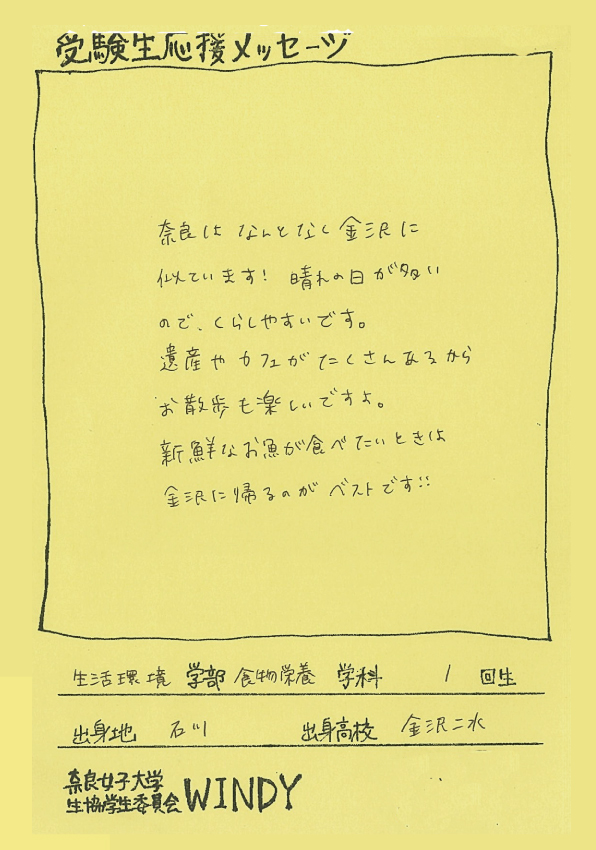 受験生応援メッセージ
奈良はなんとなく金沢に
似ています! 晴れの日が多い
ので、くらしやすいです。
遺産やカフェがたくさんあるから
お散歩も楽しいですよ。
新鮮なお魚が食べたいときは
金沢に帰るのがベストです!!
生活環境 学部 食物栄養 学科 1 回生
出身地 石川 出身高校 金沢二水
奈良女子大学
生協学生委員会 WINDY